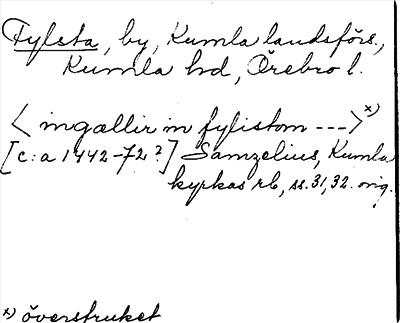 Fylsta, by, Kumla landsförs.,
Kumla hd, Örebro l.
< ingællir in fylistom --->x)
[c:a 1442-72?] Samzelius, Kumla
kyrkas rb, ss. 31, 32. orig.
x) överstruket